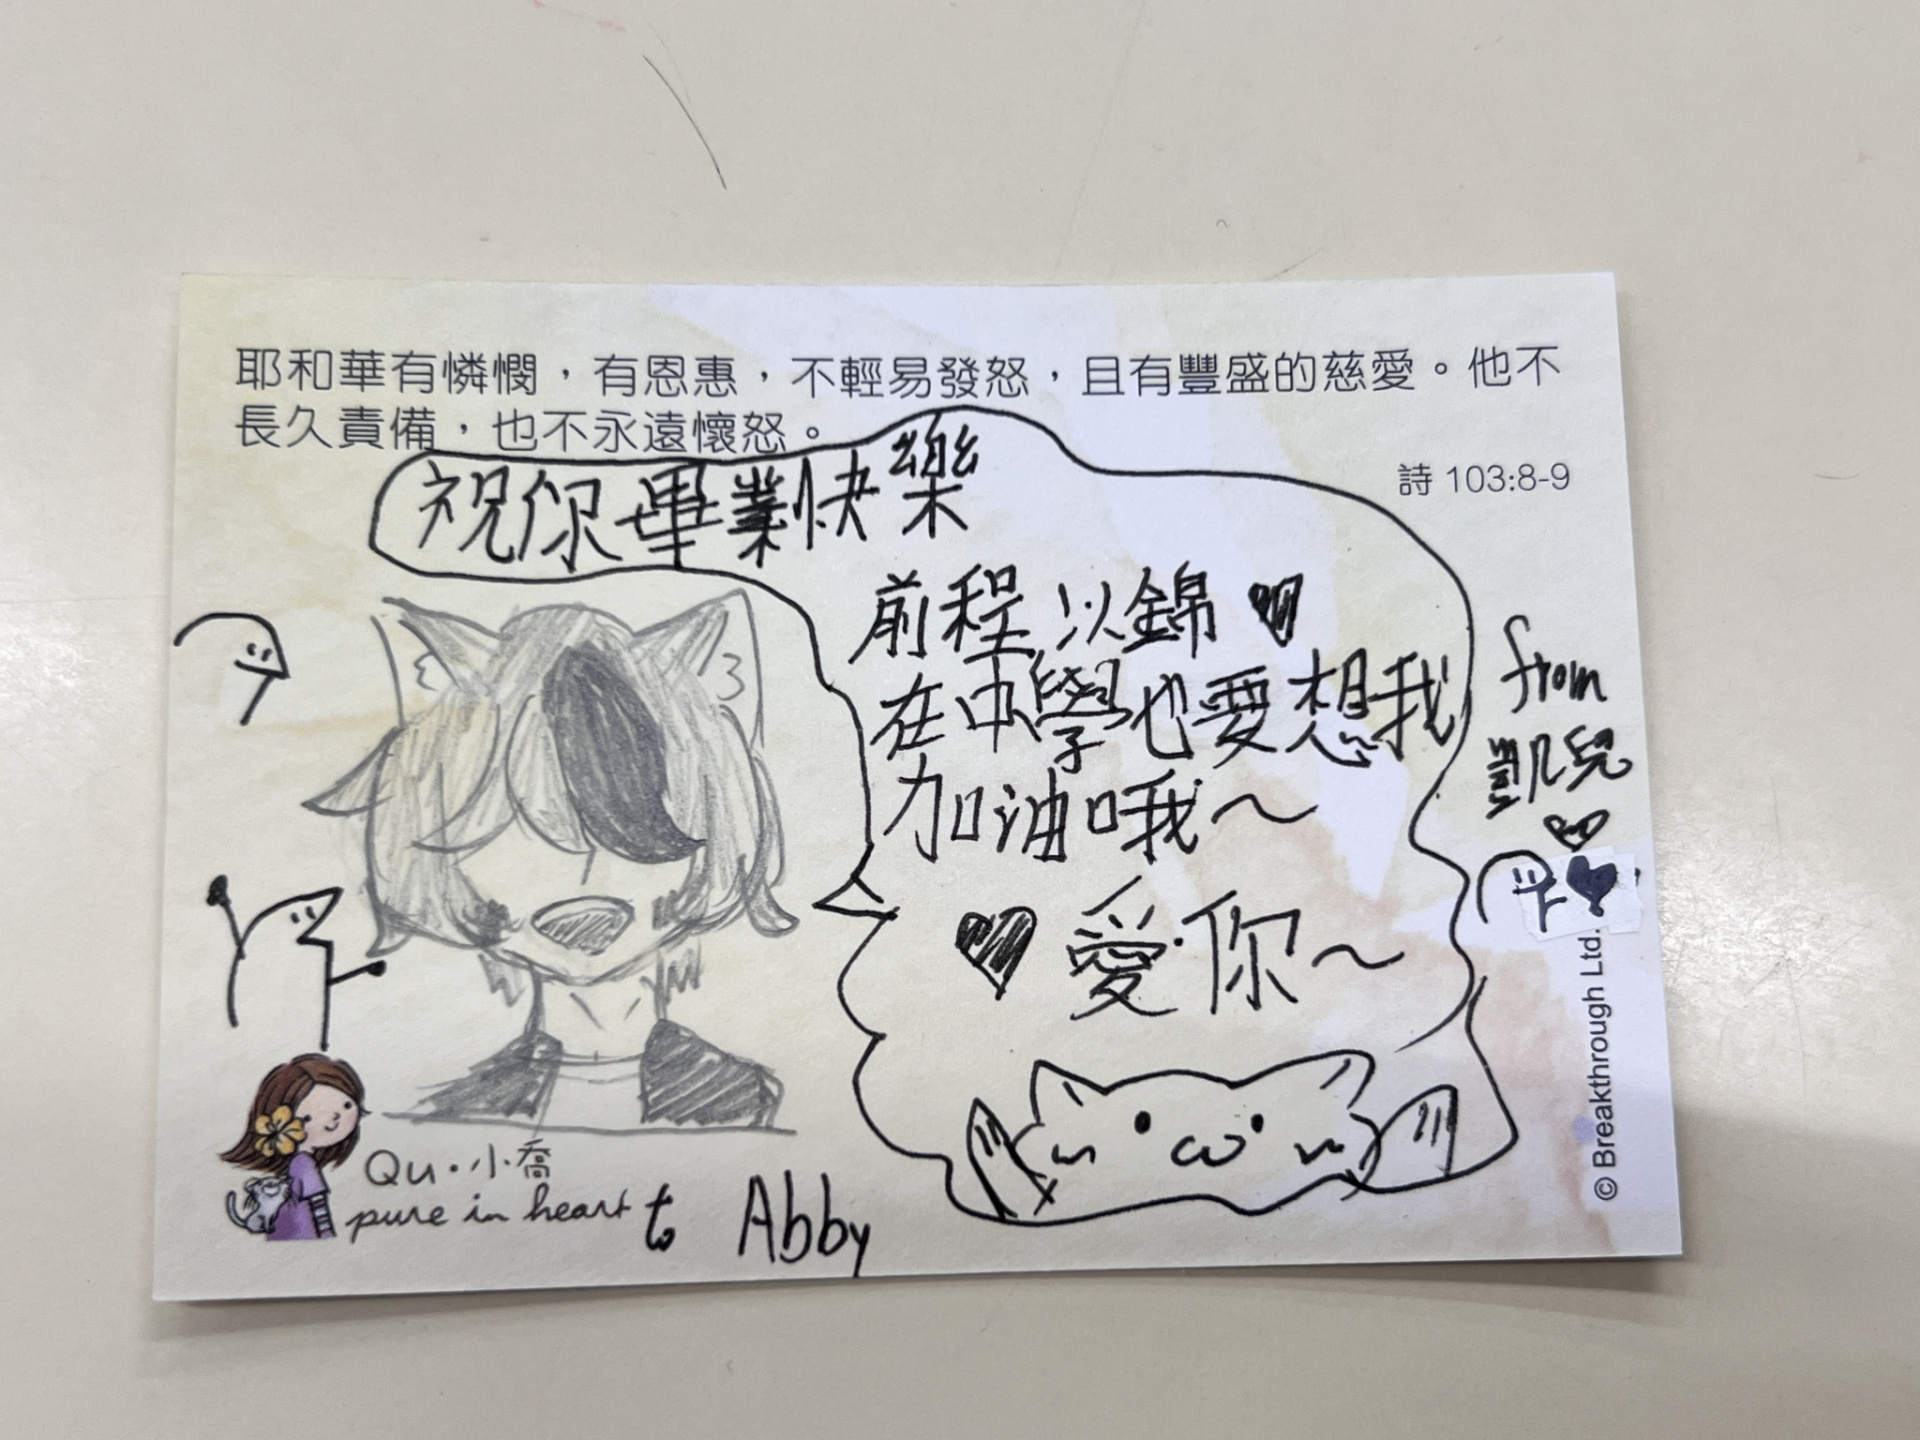 耶和華有憐憫，有恩惠，不輕易發怒，且有豐盛的慈愛。他不
長久責備，也不永遠懷怒。
詩 103:8-9
祝你畢業快樂
前程以錦
在中學也要想我
加油哦～
愛你～
from
凱兒
© Breakthrough Ltd.
Qu·小喬
pure in heart
to Abby